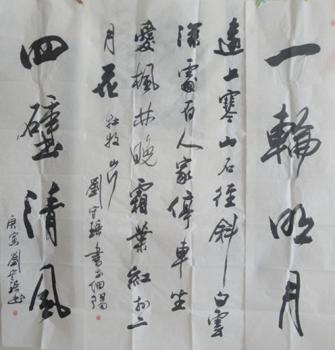 一輪明月
遠上寒山石徑斜白雲
深處有人家停車坐
愛楓林晚霜葉紅於二
月花 杜牧山行 劉守 書於
四壁清風
庚寅 劉守 書